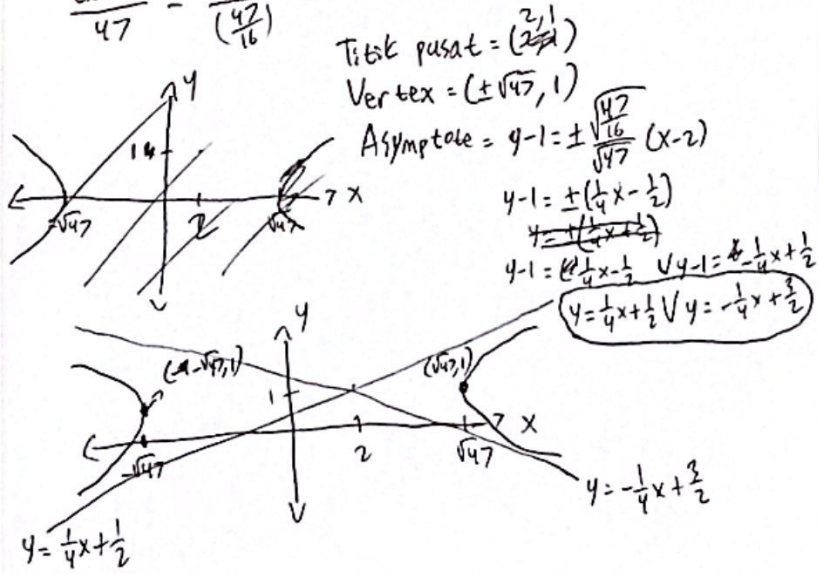 47 - (47/16)
Titik pusat = (2,1)
Vertex = (±√47, 1)
Asymptote = y-1 = ± √(47/16)/√47 (x-2)
y-1 = ±(1/4x - 1/2)
y-1 = 1/4x - 1/2 ∨ y-1 = -1/4x + 1/2
y = 1/4x + 1/2 ∨ y = -1/4x + 3/2
y
1
-√47
2
√47
x
y
(-√47,1)
(√47,1)
1
x
-√47
2
√47
y = -1/4x + 3/2
y = 1/4x + 1/2